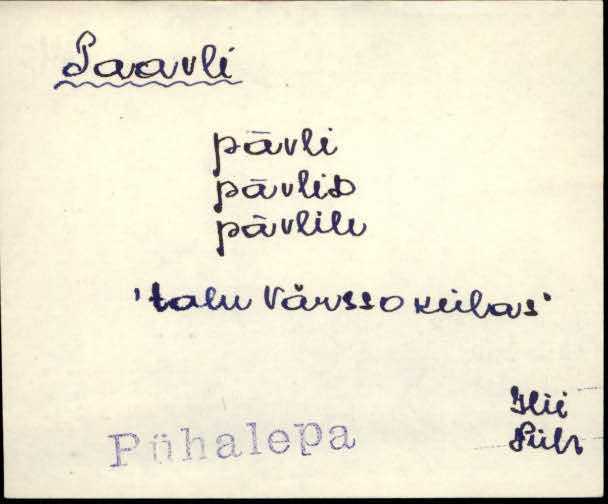 Paavli
pāvli
pāvliᴅ
pāvlile
'talu Värsso külas'
Pühalepa
Hii
Pühl